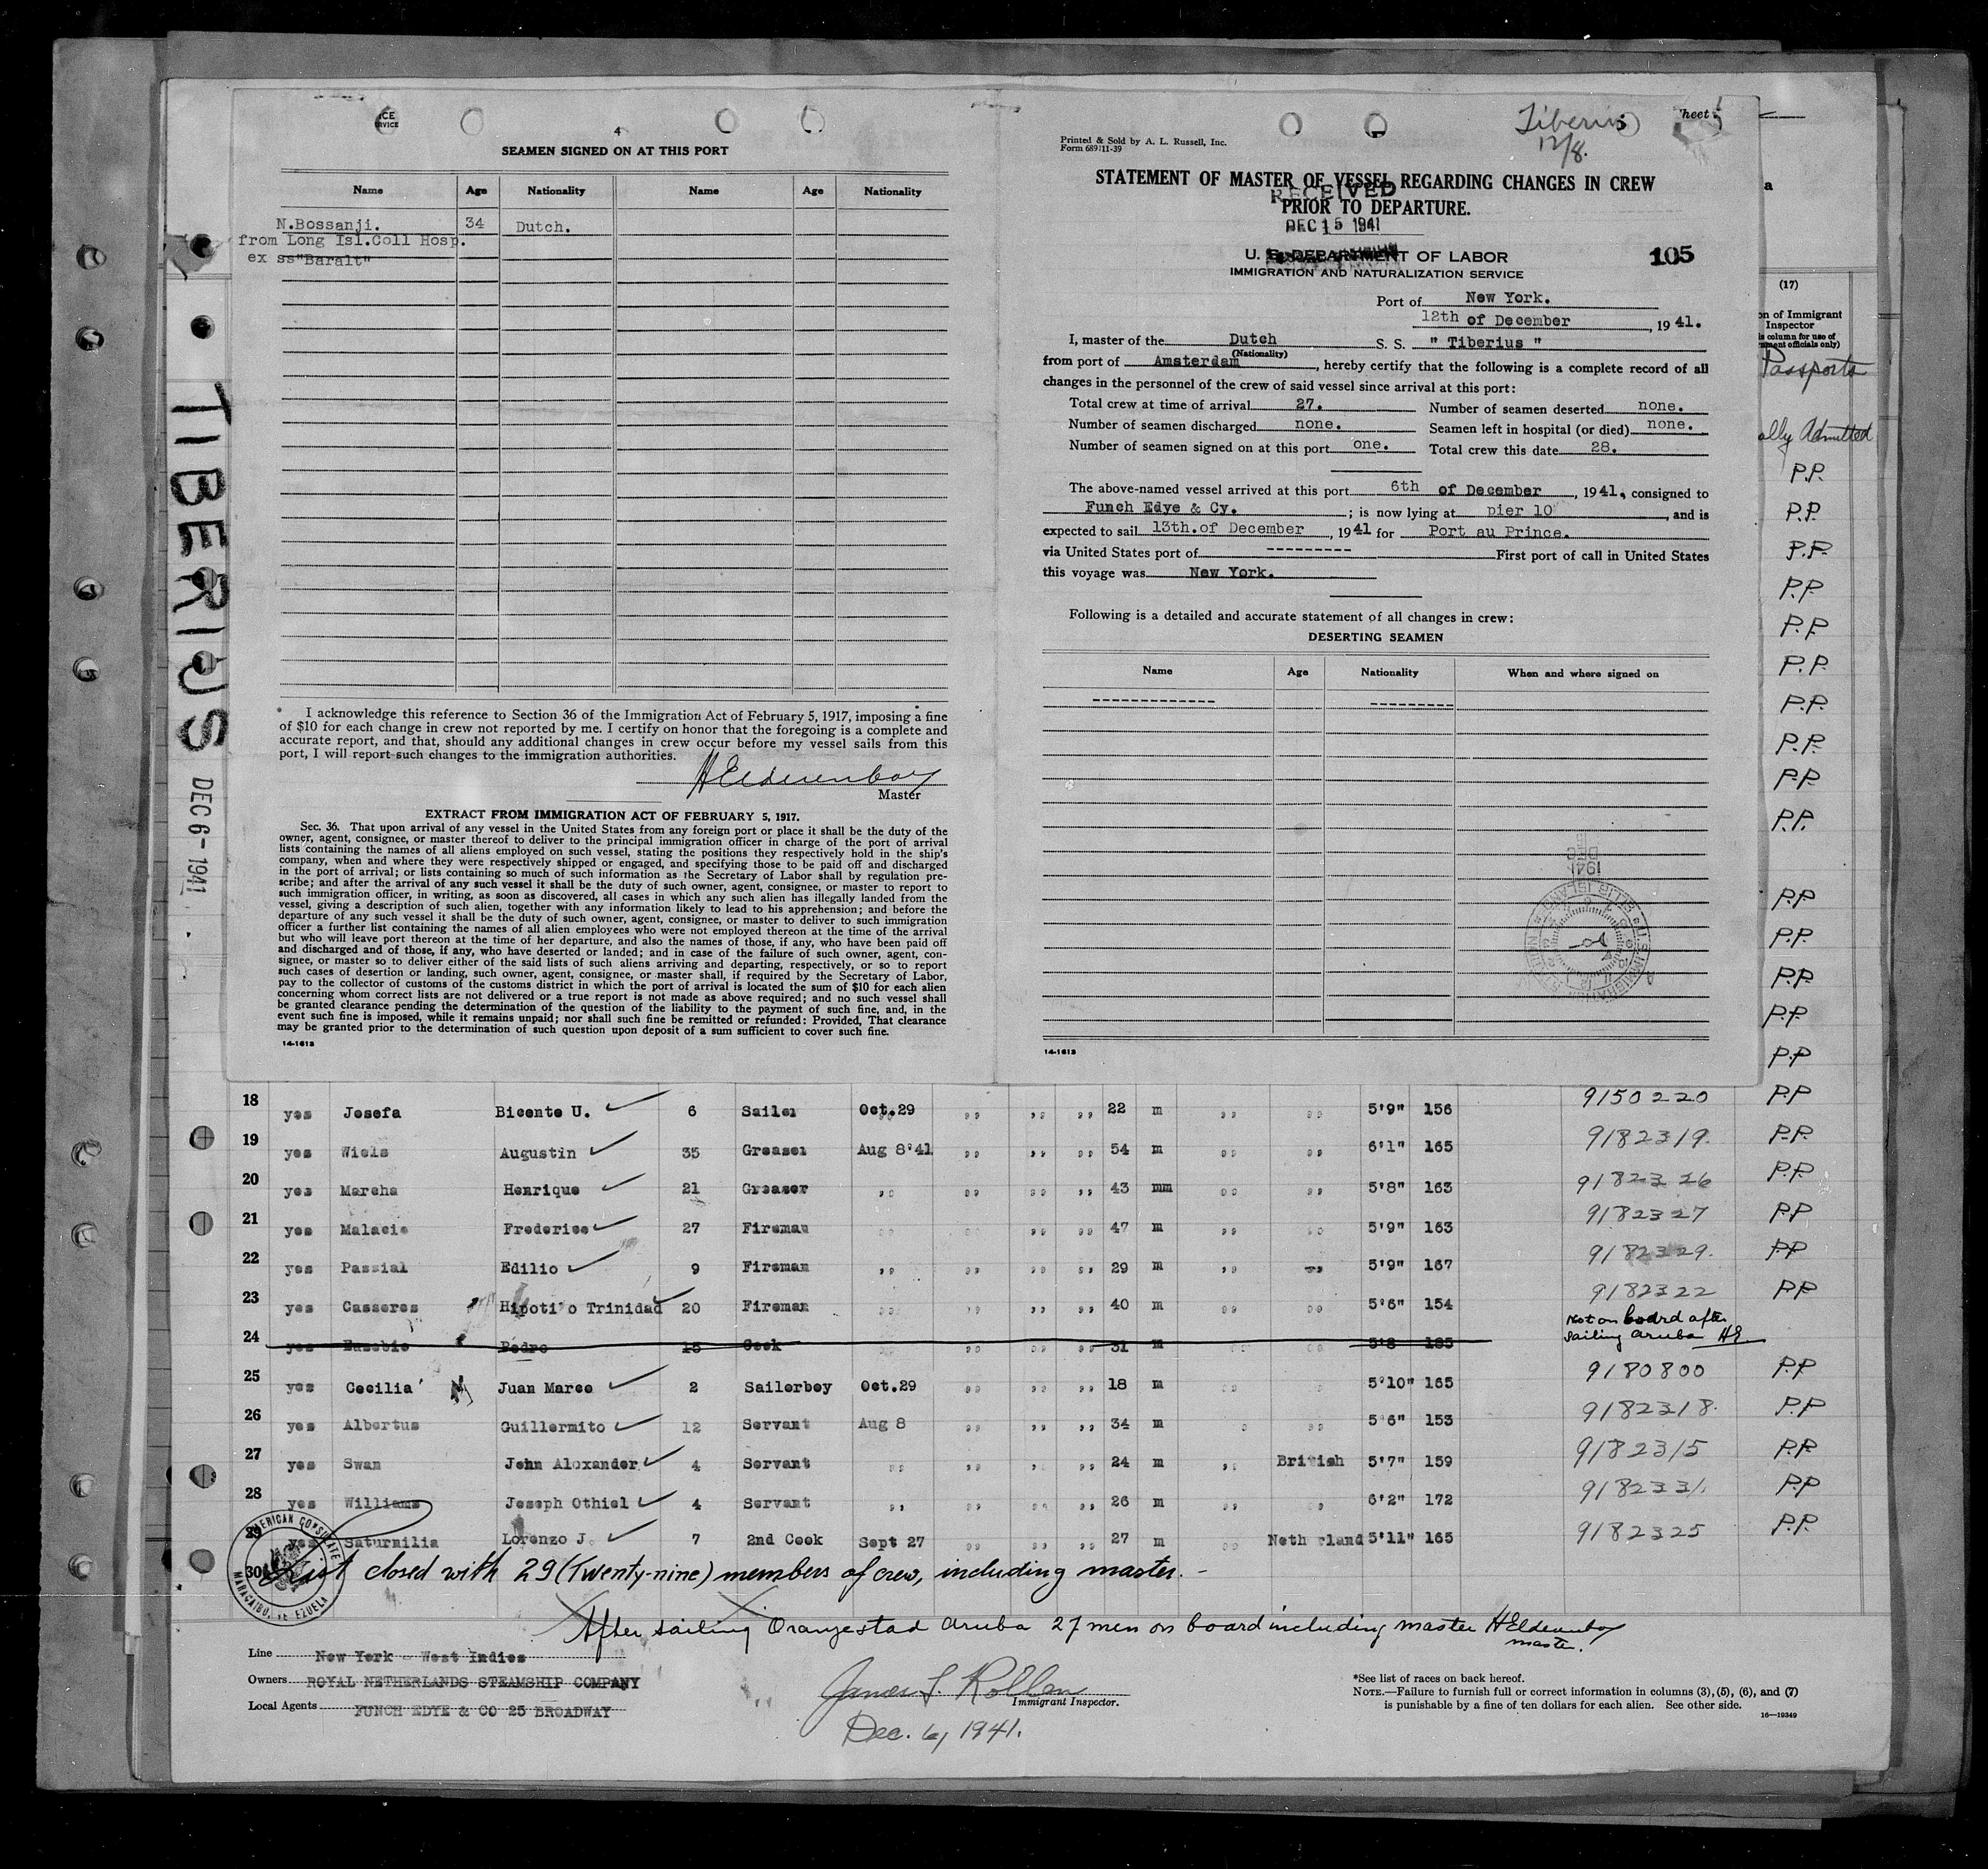 4
SEAMEN SIGNED ON AT THIS PORT
Name Age Nationality Name Age Nationality
N.Bossanji. 34 Dutch.
from Long Isl.Coll Hosp.
ex ss"Baralt"
I acknowledge this reference to Section 36 of the Immigration Act of February 5, 1917, imposing a fine
of $10 for each change in crew not reported by me. I certify on honor that the foregoing is a complete and
accurate report, and that, should any additional changes in crew occur before my vessel sails from this
port, I will report such changes to the immigration authorities.
HElderenboy
Master
EXTRACT FROM IMMIGRATION ACT OF FEBRUARY 5, 1917.
Sec. 36. That upon arrival of any vessel in the United States from any foreign port or place it shall be the duty of the
owner, agent, consignee, or master thereof to deliver to the principal immigration officer in charge of the port of arrival
lists containing the names of all aliens employed on such vessel, stating the positions they respectively hold in the ship's
company, when and where they were respectively shipped or engaged, and specifying those to be paid off and discharged
in the port of arrival; or lists containing so much of such information as the Secretary of Labor shall by regulation pre-
scribe; and after the arrival of any such vessel it shall be the duty of such owner, agent, consignee, or master to report to
such immigration officer, in writing, as soon as discovered, all cases in which any such alien has illegally landed from the
vessel, giving a description of such alien, together with any information likely to lead to his apprehension; and before the
departure of any such vessel it shall be the duty of such owner, agent, consignee, or master to deliver to such immigration
officer a further list containing the names of all alien employees who were not employed thereon at the time of the arrival
but who will leave port thereon at the time of her departure, and also the names of those, if any, who have been paid off
and discharged and of those, if any, who have deserted or landed; and in case of the failure of such owner, agent, con-
signee, or master so to deliver either of the said lists of such aliens arriving and departing, respectively, or so to report
such cases of desertion or landing, such owner, agent, consignee, or master shall, if required by the Secretary of Labor,
pay to the collector of customs of the customs district in which the port of arrival is located the sum of $10 for each alien
concerning whom correct lists are not delivered or a true report is not made as above required; and no such vessel shall
be granted clearance pending the determination of the question of the liability to the payment of such fine, and, in the
event such fine is imposed, while it remains unpaid; nor shall such fine be remitted or refunded: Provided, That clearance
may be granted prior to the determination of such question upon deposit of a sum sufficient to cover such fine.
14-1613
Tiberius
12/8.
heet 5
Printed & Sold by A. L. Russell, Inc.
Form 689 11-39
STATEMENT OF MASTER OF VESSEL REGARDING CHANGES IN CREW
PRIOR TO DEPARTURE.
RECEIVED
DEC 15 1941
U. S. DEPARTMENT OF LABOR 105
IMMIGRATION AND NATURALIZATION SERVICE
Port of New York.
12th of December, 1941.
I, master of the Dutch S. S. " Tiberius "
(Nationality)
from port of Amsterdam, hereby certify that the following is a complete record of all
changes in the personnel of the crew of said vessel since arrival at this port:
Total crew at time of arrival 27. Number of seamen deserted none.
Number of seamen discharged none. Seamen left in hospital (or died) none.
Number of seamen signed on at this port one. Total crew this date 28.
The above-named vessel arrived at this port 6th of December, 1941, consigned to
Funch Edye & Cy. ; is now lying at pier 10, and is
expected to sail 13th.of December, 1941 for Port au Prince.
via United States port of ---------- First port of call in United States
this voyage was New York.
Following is a detailed and accurate statement of all changes in crew:
DESERTING SEAMEN
Name Age Nationality When and where signed on
14-1613
TIBERIUS DEC 6 - 1941
a
(17)
on of Immigrant
Inspector
column for use of
officials only)
Passports
ally Admitted
P.P.
P.P.
P.P.
P.P
P.P
P.P.
P.P.
P.P.
P.P
P.P.
P.P
P.P
P.P
P.P
P.P
18 yes Josefa Bicente U. 6 Sailor Oct.29 ,, ,, ,, 22 m ,, ,, 5'9" 156 9150220 P.P
19 yes Wiels Augustin 35 Greaser Aug 8'41 ,, ,, ,, 54 m ,, ,, 6'1" 165 9182319. P.P.
20 yes Marcha Henrique 21 Greaser ,, ,, ,, ,, 43 mm ,, ,, 5'8" 163 9182326 P.P
21 yes Malacia Frederico 27 Fireman ,, ,, ,, ,, 47 m ,, ,, 5'9" 163 9182327 P.P
22 yes Passial Edilio 9 Fireman ,, ,, ,, ,, 29 m ,, ,, 5'9" 167 9182329. P.P
23 yes Casseres Hipoti'o Trinidad 20 Fireman ,, ,, ,, ,, 40 m ,, ,, 5'6" 154 9182322 P.P
24 yes Eusebio Pedro 15 Cook ,, ,, ,, ,, 31 m ,, ,, 5'8 185 Not on board after
sailing Aruba HE
25 yes Cecilia Juan Marco 2 Sailorboy Oct.29 ,, ,, ,, 18 m ,, ,, 5'10" 165 9180800 P.P
26 yes Albertus Guillermito 12 Servant Aug 8 ,, ,, ,, 34 m ,, ,, 5'6" 153 9182318. P.P
27 yes Swan John Alexander 4 Servant ,, ,, ,, ,, 24 m ,, British 5'7" 159 9182315 P.P.
28 yes Williams Joseph Othiel 4 Servant ,, ,, ,, ,, 26 m ,, ,, 6'2" 172 9182331. P.P
29 yes Saturnilia Lorenzo J. 7 2nd Cook Sept 27 ,, ,, ,, 27 m ,, Netherland 5'11" 165 9182325 P.P.
30 List closed with 29 (Twenty-nine) members of crew, including master. -
AMERICAN CONSULATE
MARACAIBO, VENEZUELA
After sailing Oranjestad Aruba 27 men on board including master HElderenboy
master.
Line New York - West Indies
Owners ROYAL NETHERLANDS STEAMSHIP COMPANY
Local Agents FUNCH EDYE & CO 25 BROADWAY
Immigrant Inspector.
Dec. 6, 1941.
*See list of races on back hereof.
NOTE.—Failure to furnish full or correct information in columns (3), (5), (6), and (7)
is punishable by a fine of ten dollars for each alien. See other side.
16—19349